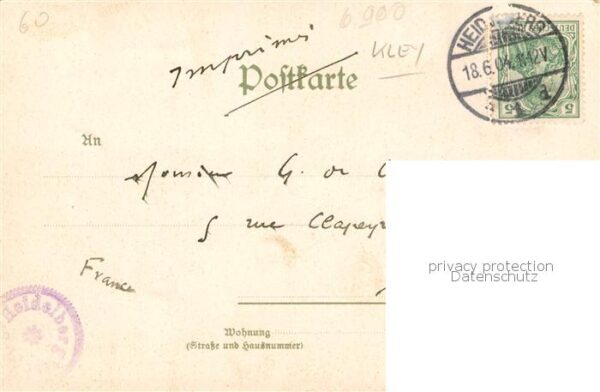 60
6.900
Imprimés
KLEY
Postkarte
HEIDELBERG
18.6.04. 11-12V.
DEUTSCHES
5 5
An
Monsieur G. de
5 rue Clapey
France
privacy protection
Datenschutz
Heidelberg
Wohnung
(Straße und Hausnummer)